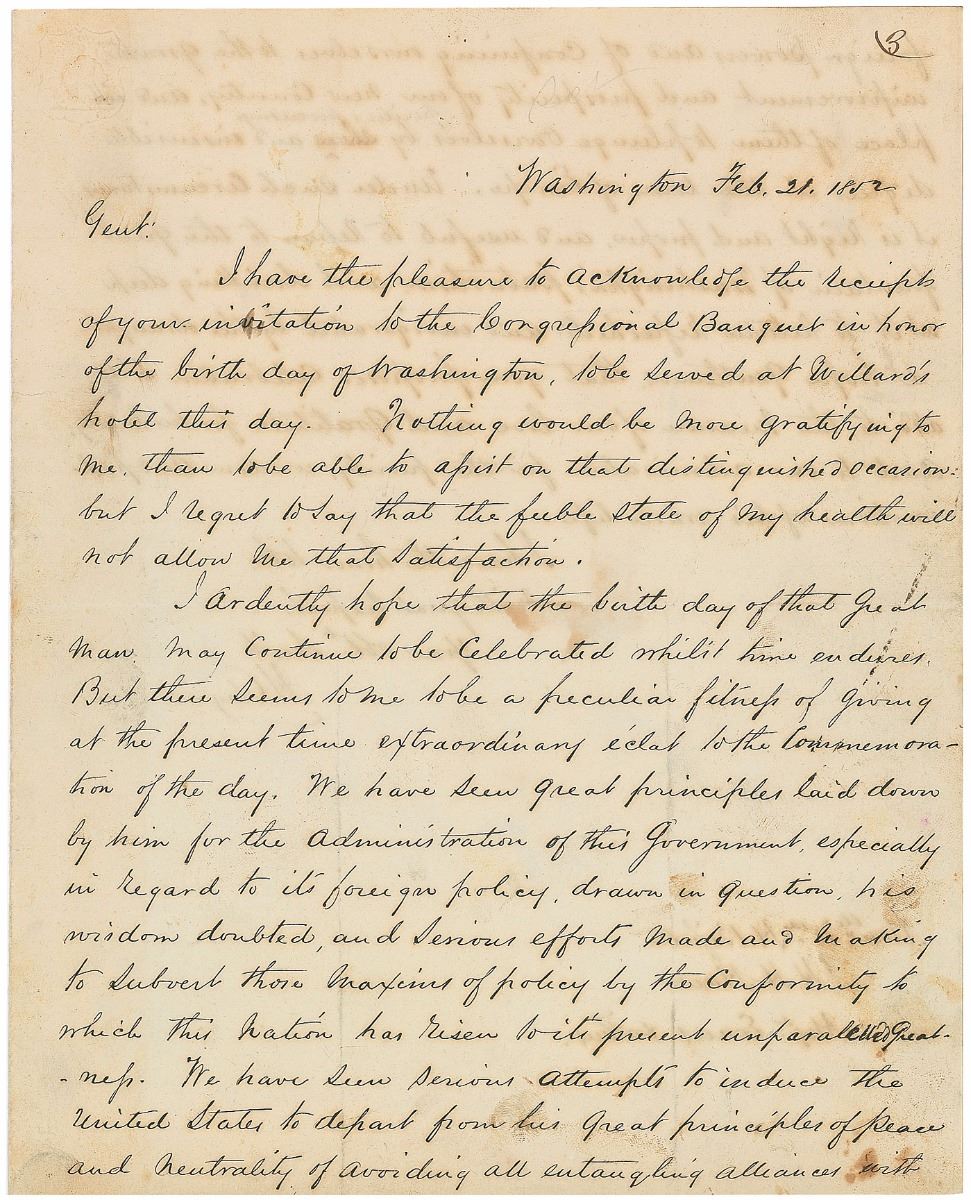 3
Washington Feb. 21. 1852
Gent:
I have the pleasure to acknowledge the receipt
of your invitation to the Congressional Banquet in honor
of the birth day of Washington, to be served at Willard's
hotel this day. Nothing would be more gratifying to
me, than to be able to assist on that distinguished occasion:
but I regret to say that the feeble state of my health will
not allow me that satisfaction.
I ardently hope that the birth day of that Great
man may continue to be celebrated whilst time endures.
But there seems to me to be a peculiar fitness of giving
at the present time extraordinary éclat to the commemora-
tion of the day. We have seen great principles laid down
by him for the administration of this Government, especially
in regard to its foreign policy, drawn in question, his
wisdom doubted, and serious efforts made and making
to subvert those maxims of policy by the conformity to
which this Nation has risen to its present unparalelled Great-
-ness. We have seen serious attempts to induce the
United States to depart from his great principles of peace
and neutrality of avoiding all entangling alliances with